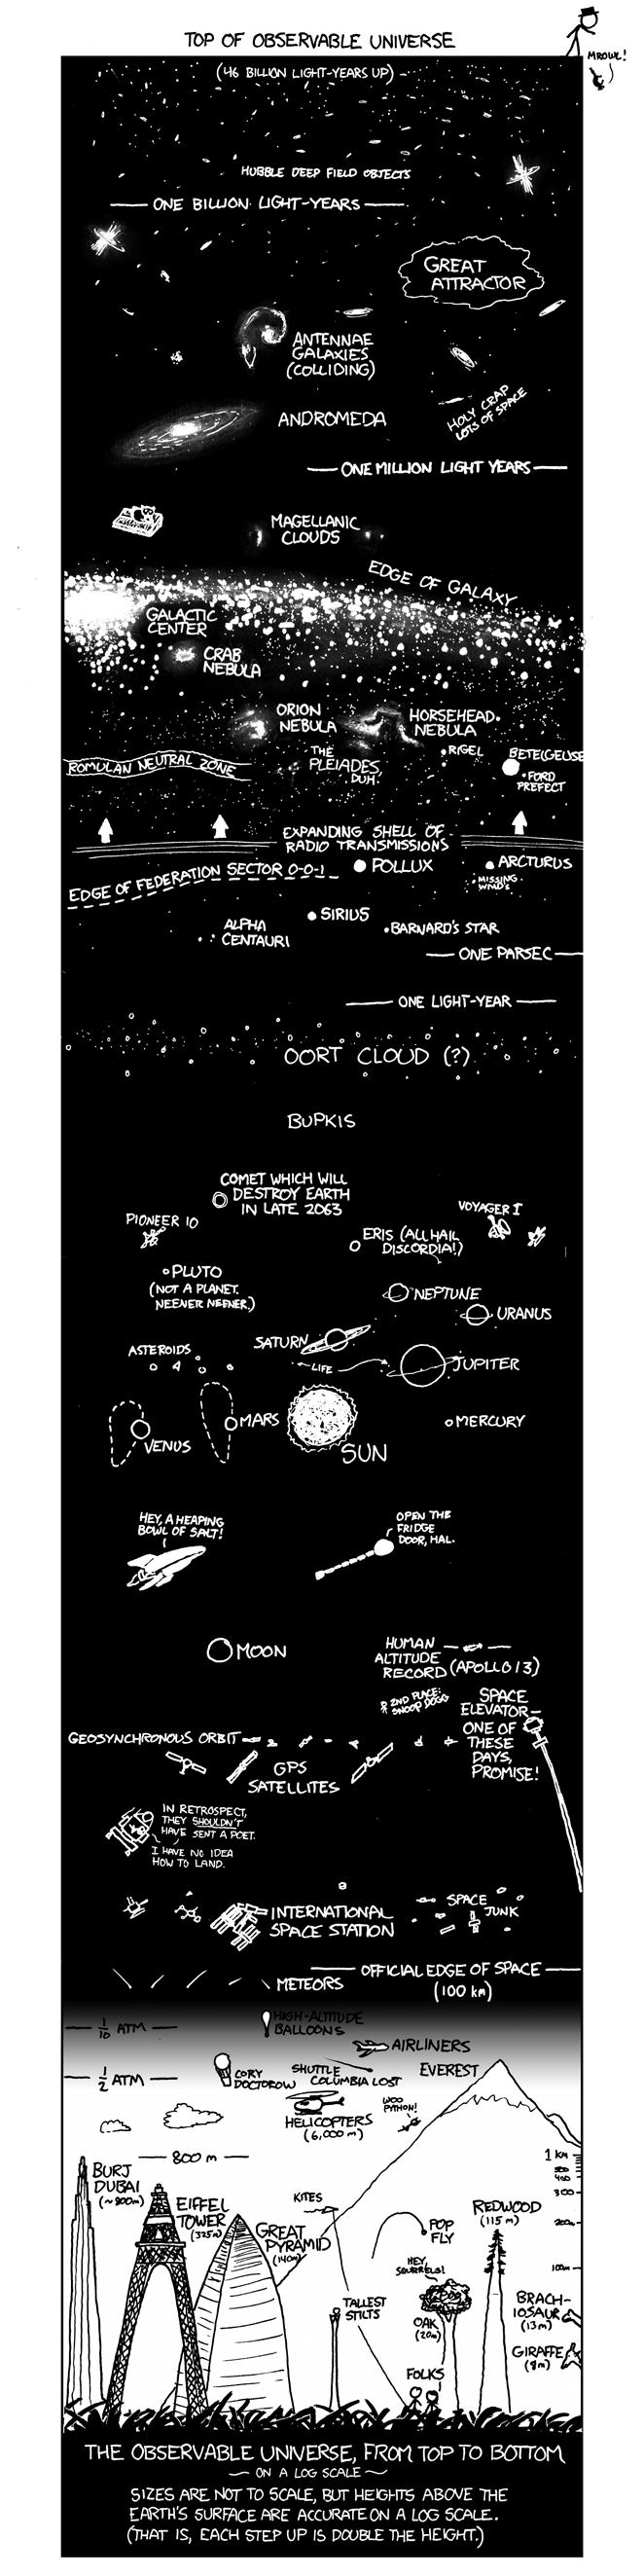 TOP OF OBSERVABLE UNIVERSE
MROWL!
(46 BILLION LIGHT-YEARS UP)
HUBBLE DEEP FIELD OBJECTS
ONE BILLION LIGHT-YEARS
GREAT
ATTRACTOR
ANTENNAE
GALAXIES
(COLLIDING)
HOLY CRAP
LOTS OF SPACE
ANDROMEDA
ONE MILLION LIGHT YEARS
MAGELLANIC
CLOUDS
EDGE OF GALAXY
GALACTIC
CENTER
CRAB
NEBULA
ORION
NEBULA
HORSEHEAD
NEBULA
ROMULAN NEUTRAL ZONE
THE
PLEIADES,
DUH.
RIGEL
BETELGEUSE
FORD
PREFECT
EXPANDING SHELL OF
RADIO TRANSMISSIONS
POLLUX
ARCTURUS
EDGE OF FEDERATION SECTOR 0-0-1
MISSING
WMD'S
SIRIUS
ALPHA
CENTAURI
BARNARD'S STAR
ONE PARSEC
ONE LIGHT-YEAR
OORT CLOUD (?)
BUPKIS
COMET WHICH WILL
DESTROY EARTH
IN LATE 2063
PIONEER 10
VOYAGER I
ERIS (ALL HAIL
DISCORDIA!)
PLUTO
(NOT A PLANET.
NEENER NEENER.)
NEPTUNE
URANUS
SATURN
ASTEROIDS
LIFE
JUPITER
MARS
MERCURY
VENUS
SUN
HEY, A HEAPING
BOWL OF SALT!
OPEN THE
FRIDGE
DOOR, HAL.
MOON
HUMAN
ALTITUDE
RECORD (APOLLO 13)
2ND PLACE:
SNOOP DOGG
SPACE
ELEVATOR—
ONE OF
THESE
DAYS,
PROMISE!
GEOSYNCHRONOUS ORBIT
GPS
SATELLITES
IN RETROSPECT,
THEY SHOULDN'T
HAVE SENT A POET.
I HAVE NO IDEA
HOW TO LAND.
INTERNATIONAL
SPACE STATION
SPACE
JUNK
OFFICIAL EDGE OF SPACE
(100 km)
METEORS
1/10 ATM
HIGH-ALTITUDE
BALLOONS
AIRLINERS
1/2 ATM
CORY
DOCTOROW
SHUTTLE
COLUMBIA LOST
EVEREST
HELICOPTERS
(6,000 m)
WOO
PYTHON!
800 m
1 KM
500
400
300
200m
100m
BURJ
DUBAI
(~800m)
EIFFEL
TOWER
(325m)
GREAT
PYRAMID
(140m)
KITES
POP
FLY
REDWOOD
(115 m)
HEY,
SQUIRRELS!
TALLEST
STILTS
OAK
(20m)
BRACH-
IOSAUR
(13m)
GIRAFFE
(8m)
FOLKS
THE OBSERVABLE UNIVERSE, FROM TOP TO BOTTOM
— ON A LOG SCALE —
SIZES ARE NOT TO SCALE, BUT HEIGHTS ABOVE THE
EARTH'S SURFACE ARE ACCURATE ON A LOG SCALE.
(THAT IS, EACH STEP UP IS DOUBLE THE HEIGHT.)